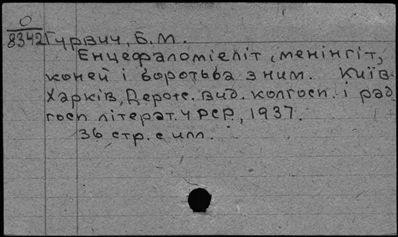 О
8342 Гурвич, Б. М.
Енцефаломіеліт, менінгіт,
коней і боротьба з ним. Київ-
Харків, Держ. вид. колгосп. і рад
госп літерат. УРСР, 1937.
36 стр. с илл.